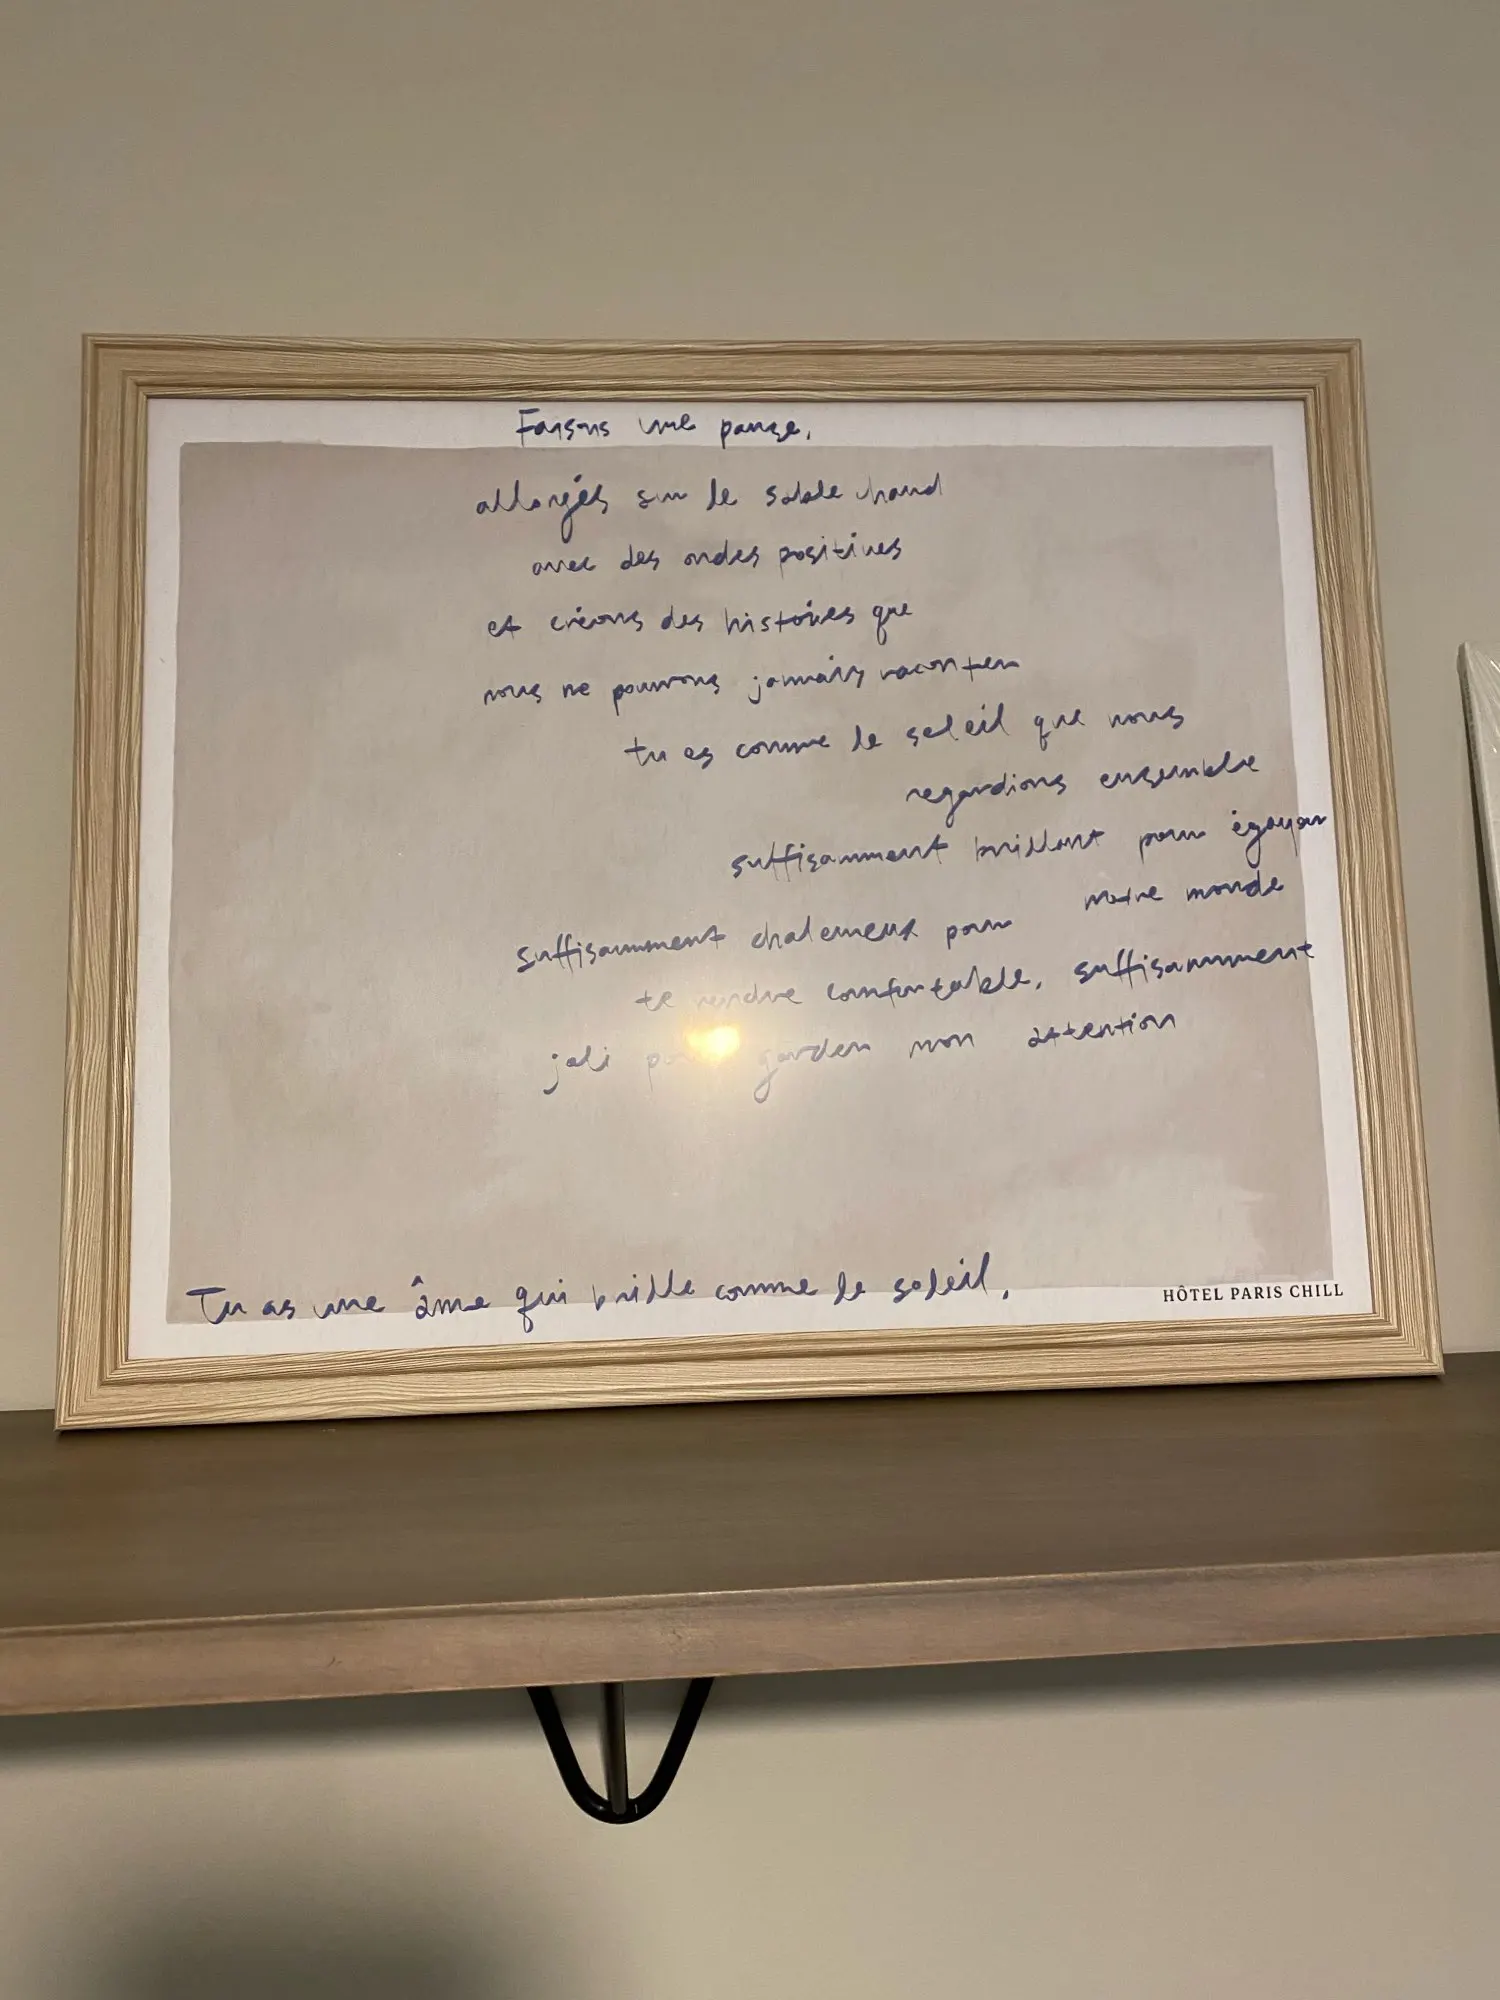 Faisons une pause,
allongés sur le sable chaud
avec des ondes positives
et créons des histoires que
nous ne pourrons jamais raconter
tu es comme le soleil que nous
regardions ensemble
suffisamment brillant pour égayer
notre monde
suffisamment chaleureux pour
te rendre confortable, suffisamment
joli pour garder mon attention
Tu as une âme qui brille comme le soleil,
HÔTEL PARIS CHILL